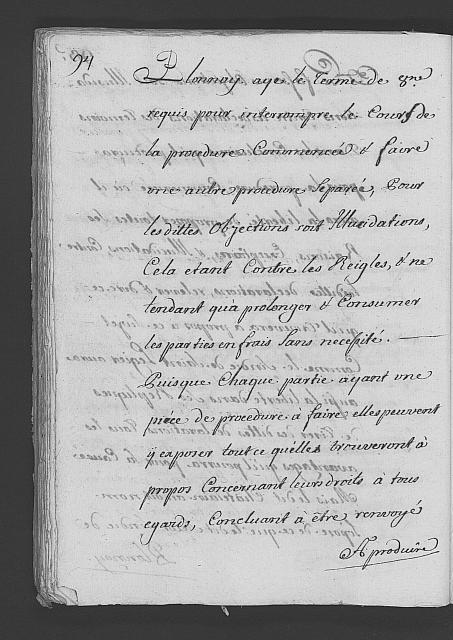 94
Blonnay aye le Terme de 8ne
requis pour interrompre le Cours de
la procedure Commencée & faire
vne autre procedure Separée, Pour
lesdittes Objections soit Illucidations,
Cela etant Contre les Reigles, & ne
tendant qu'a prolonger & Consumer
les parties en frais Sans necessité.
Puisque Chaque partie ayant vne
piéce de procedure a faire elles peuvent
y exposer tout ce qu'elles trouveront à
propos Concernant leurs droits à tous
egards, Concluant à être renvoyé
A produire